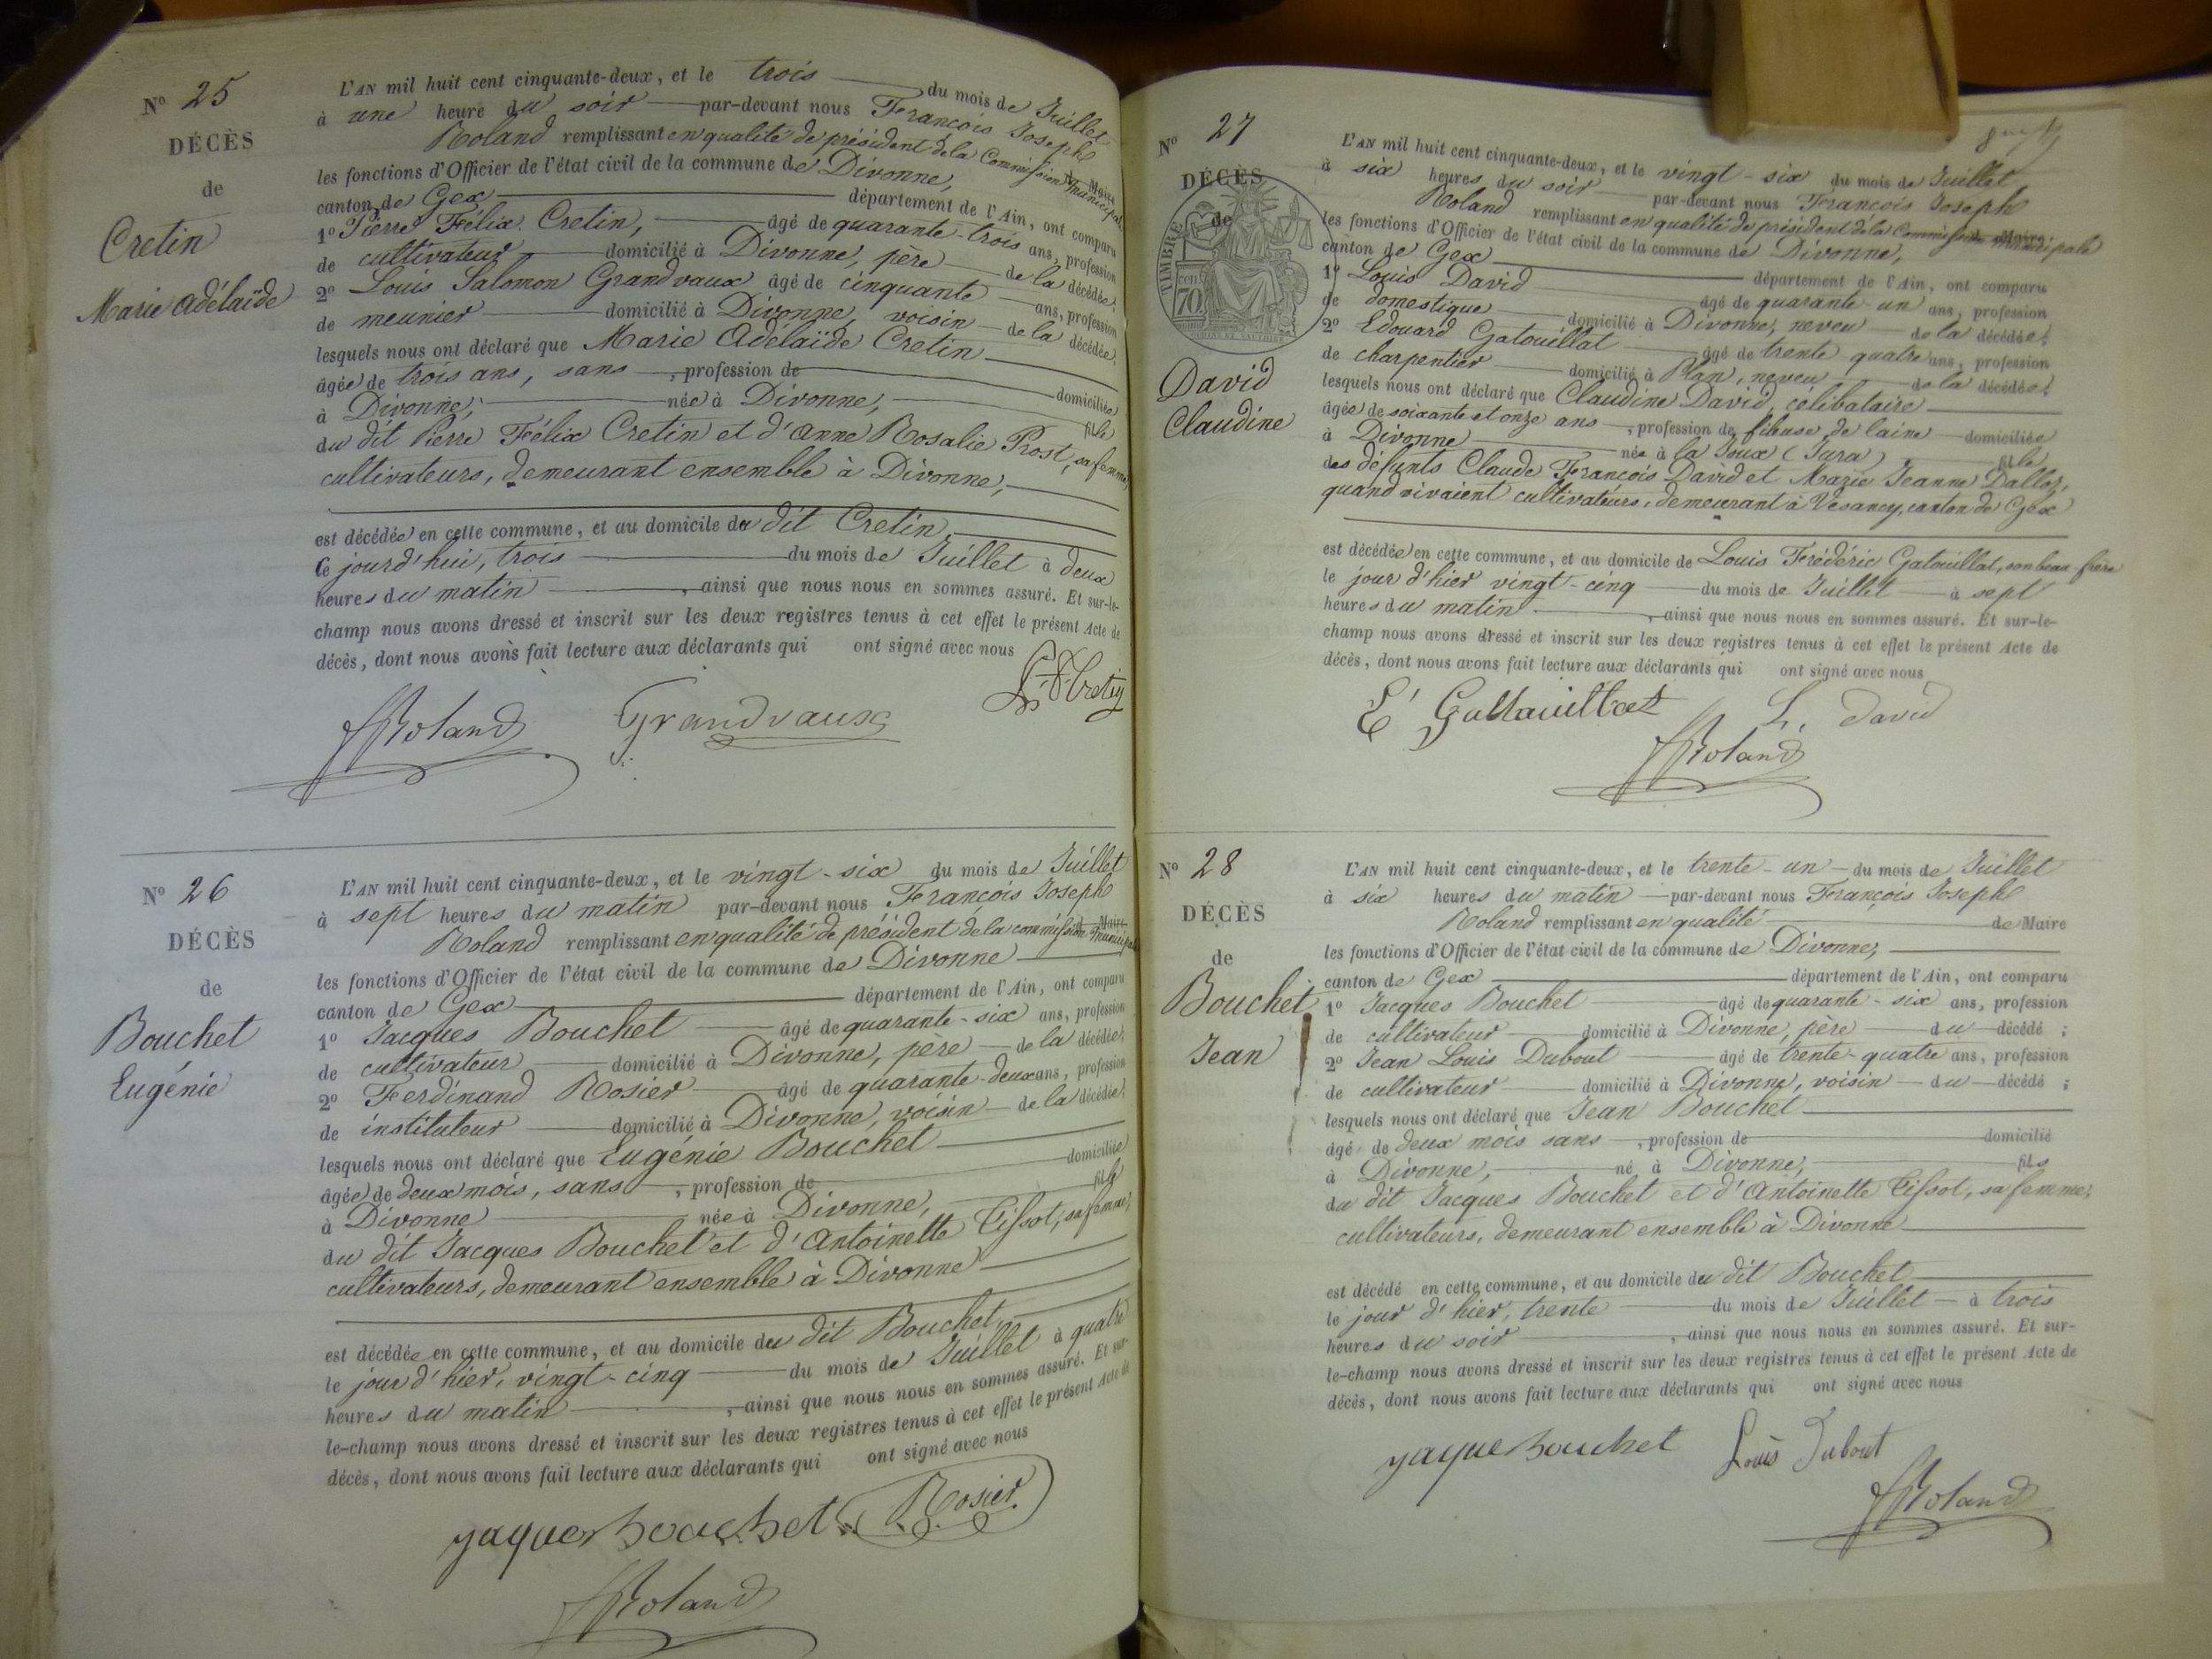 N° 25
DÉCÈS
de
Cretin
Marie Adélaïde
L'AN mil huit cent cinquante-deux, et le trois du mois de Juillet
à une heure du soir par-devant nous François Joseph
Roland remplissant en qualité de président de la Commission municipale de Maire
les fonctions d'Officier de l'état civil de la commune de Divonne,
canton de Gex département de l'Ain, ont comparu
1° Pierre Félix Cretin, âgé de quarante-trois ans, profession
de cultivateur domicilié à Divonne, père de la décédée;
2° Louis Salomon Grandvaux âgé de cinquante ans, profession
de meunier domicilié à Divonne, voisin de la décédée;
lesquels nous ont déclaré que Marie Adélaïde Cretin
âgée de trois ans, sans , profession de domiciliée
à Divonne, née à Divonne, fille
du dit Pierre Félix Cretin et d'Anne Rosalie Prost, sa femme,
cultivateurs, demeurant ensemble à Divonne,
est décédée en cette commune, et au domicile du dit Cretin
ce jourd'hui, trois du mois de Juillet à deux
heures du matin , ainsi que nous nous en sommes assuré. Et sur-le-
champ nous avons dressé et inscrit sur les deux registres tenus à cet effet le présent Acte de
décès, dont nous avons fait lecture aux déclarants qui ont signé avec nous
Roland Grandvaux Cretin
N° 26
DÉCÈS
de
Bouchet
Eugénie
L'AN mil huit cent cinquante-deux, et le vingt-six du mois de Juillet
à sept heures du matin par-devant nous François Joseph
Roland remplissant en qualité de président de la commission municipale de Maire
les fonctions d'Officier de l'état civil de la commune de Divonne
canton de Gex département de l'Ain, ont comparu
1° Jacques Bouchet âgé de quarante-six ans, profession
de cultivateur domicilié à Divonne, père de la décédée;
2° Ferdinand Rosier âgé de quarante-deux ans, profession
de instituteur domicilié à Divonne, voisin de la décédée;
lesquels nous ont déclaré que Eugénie Bouchet
âgée de deux mois, sans , profession de domiciliée
à Divonne née à Divonne, fille
du dit Jacques Bouchet et d'Antoinette Tissot, sa femme,
cultivateurs, demeurant ensemble à Divonne
est décédée en cette commune, et au domicile du dit Bouchet,
le jour d'hier, vingt-cinq du mois de Juillet à quatre
heures du matin , ainsi que nous nous en sommes assuré. Et sur-
le-champ nous avons dressé et inscrit sur les deux registres tenus à cet effet le présent Acte de
décès, dont nous avons fait lecture aux déclarants qui ont signé avec nous
yaques bouchet Rosier
Roland
N° 27
DÉCÈS
de
TIMBRE
70 cen.
David
Claudine
L'AN mil huit cent cinquante-deux, et le vingt-six du mois de Juillet
à six heures du soir par-devant nous François Joseph
Roland remplissant en qualité de président de la Commission municipale de Maire
les fonctions d'Officier de l'état civil de la commune de Divonne,
canton de Gex département de l'Ain, ont comparu
1° Louis David âgé de quarante-un ans, profession
de domestique domicilié à Divonne, neveu de la décédée;
2° Edouard Gatouillat âgé de trente quatre ans, profession
de charpentier domicilié à Plan, neveu de la décédée;
lesquels nous ont déclaré que Claudine David, célibataire
âgée de soixante et onze ans , profession de fileuse de laine domiciliée
à Divonne née à la Joux (Jura) fille
des défunts Claude François David et Marie Jeanne Dalloz,
quand vivaient cultivateurs, demeurant à Vesancy, canton de Gex
est décédée en cette commune, et au domicile de Louis Frédéric Gatouillat, son beau frère
le jour d'hier vingt-cinq du mois de Juillet à sept
heures du matin , ainsi que nous nous en sommes assuré. Et sur-le-
champ nous avons dressé et inscrit sur les deux registres tenus à cet effet le présent Acte de
décès, dont nous avons fait lecture aux déclarants qui ont signé avec nous
L. David
Roland
N° 28
DÉCÈS
de
Bouchet
Jean
L'AN mil huit cent cinquante-deux, et le trente-un du mois de Juillet
à six heures du matin par-devant nous François Joseph
Roland remplissant en qualité de Maire
les fonctions d'Officier de l'état civil de la commune de Divonne,
canton de Gex département de l'Ain, ont comparu
1° Jacques Bouchet âgé de quarante-six ans, profession
de cultivateur domicilié à Divonne, père du décédé;
2° Jean Louis Dubout âgé de trente-quatre ans, profession
de cultivateur domicilié à Divonne, voisin du décédé;
lesquels nous ont déclaré que Jean Bouchet
âgé de deux mois sans , profession de domicilié
à Divonne, né à Divonne, fils
du dit Jacques Bouchet et d'Antoinette Tissot, sa femme,
cultivateurs, demeurant ensemble à Divonne
est décédé en cette commune, et au domicile du dit Bouchet
le jour d'hier, trente du mois de Juillet à trois
heures du soir , ainsi que nous nous en sommes assuré. Et sur-
le-champ nous avons dressé et inscrit sur les deux registres tenus à cet effet le présent Acte de
décès, dont nous avons fait lecture aux déclarants qui ont signé avec nous
yaques bouchet Louis Dubout
Roland